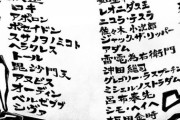 ゼウス
アポロン
ポセイドン
スサノヲノミコト
ヘラクレス
トール
毘沙門天
アヌビス
オーディン
ベルゼブブ
レオニダス王
ニコラ・テスラ
佐々木小次郎
ジャック・ザ・リッパー
アダム
雷電為右衛門
沖田総司
グレゴリー・ラスプーチン
呂布奉先
シモ・ヘイヘ
坂田金時